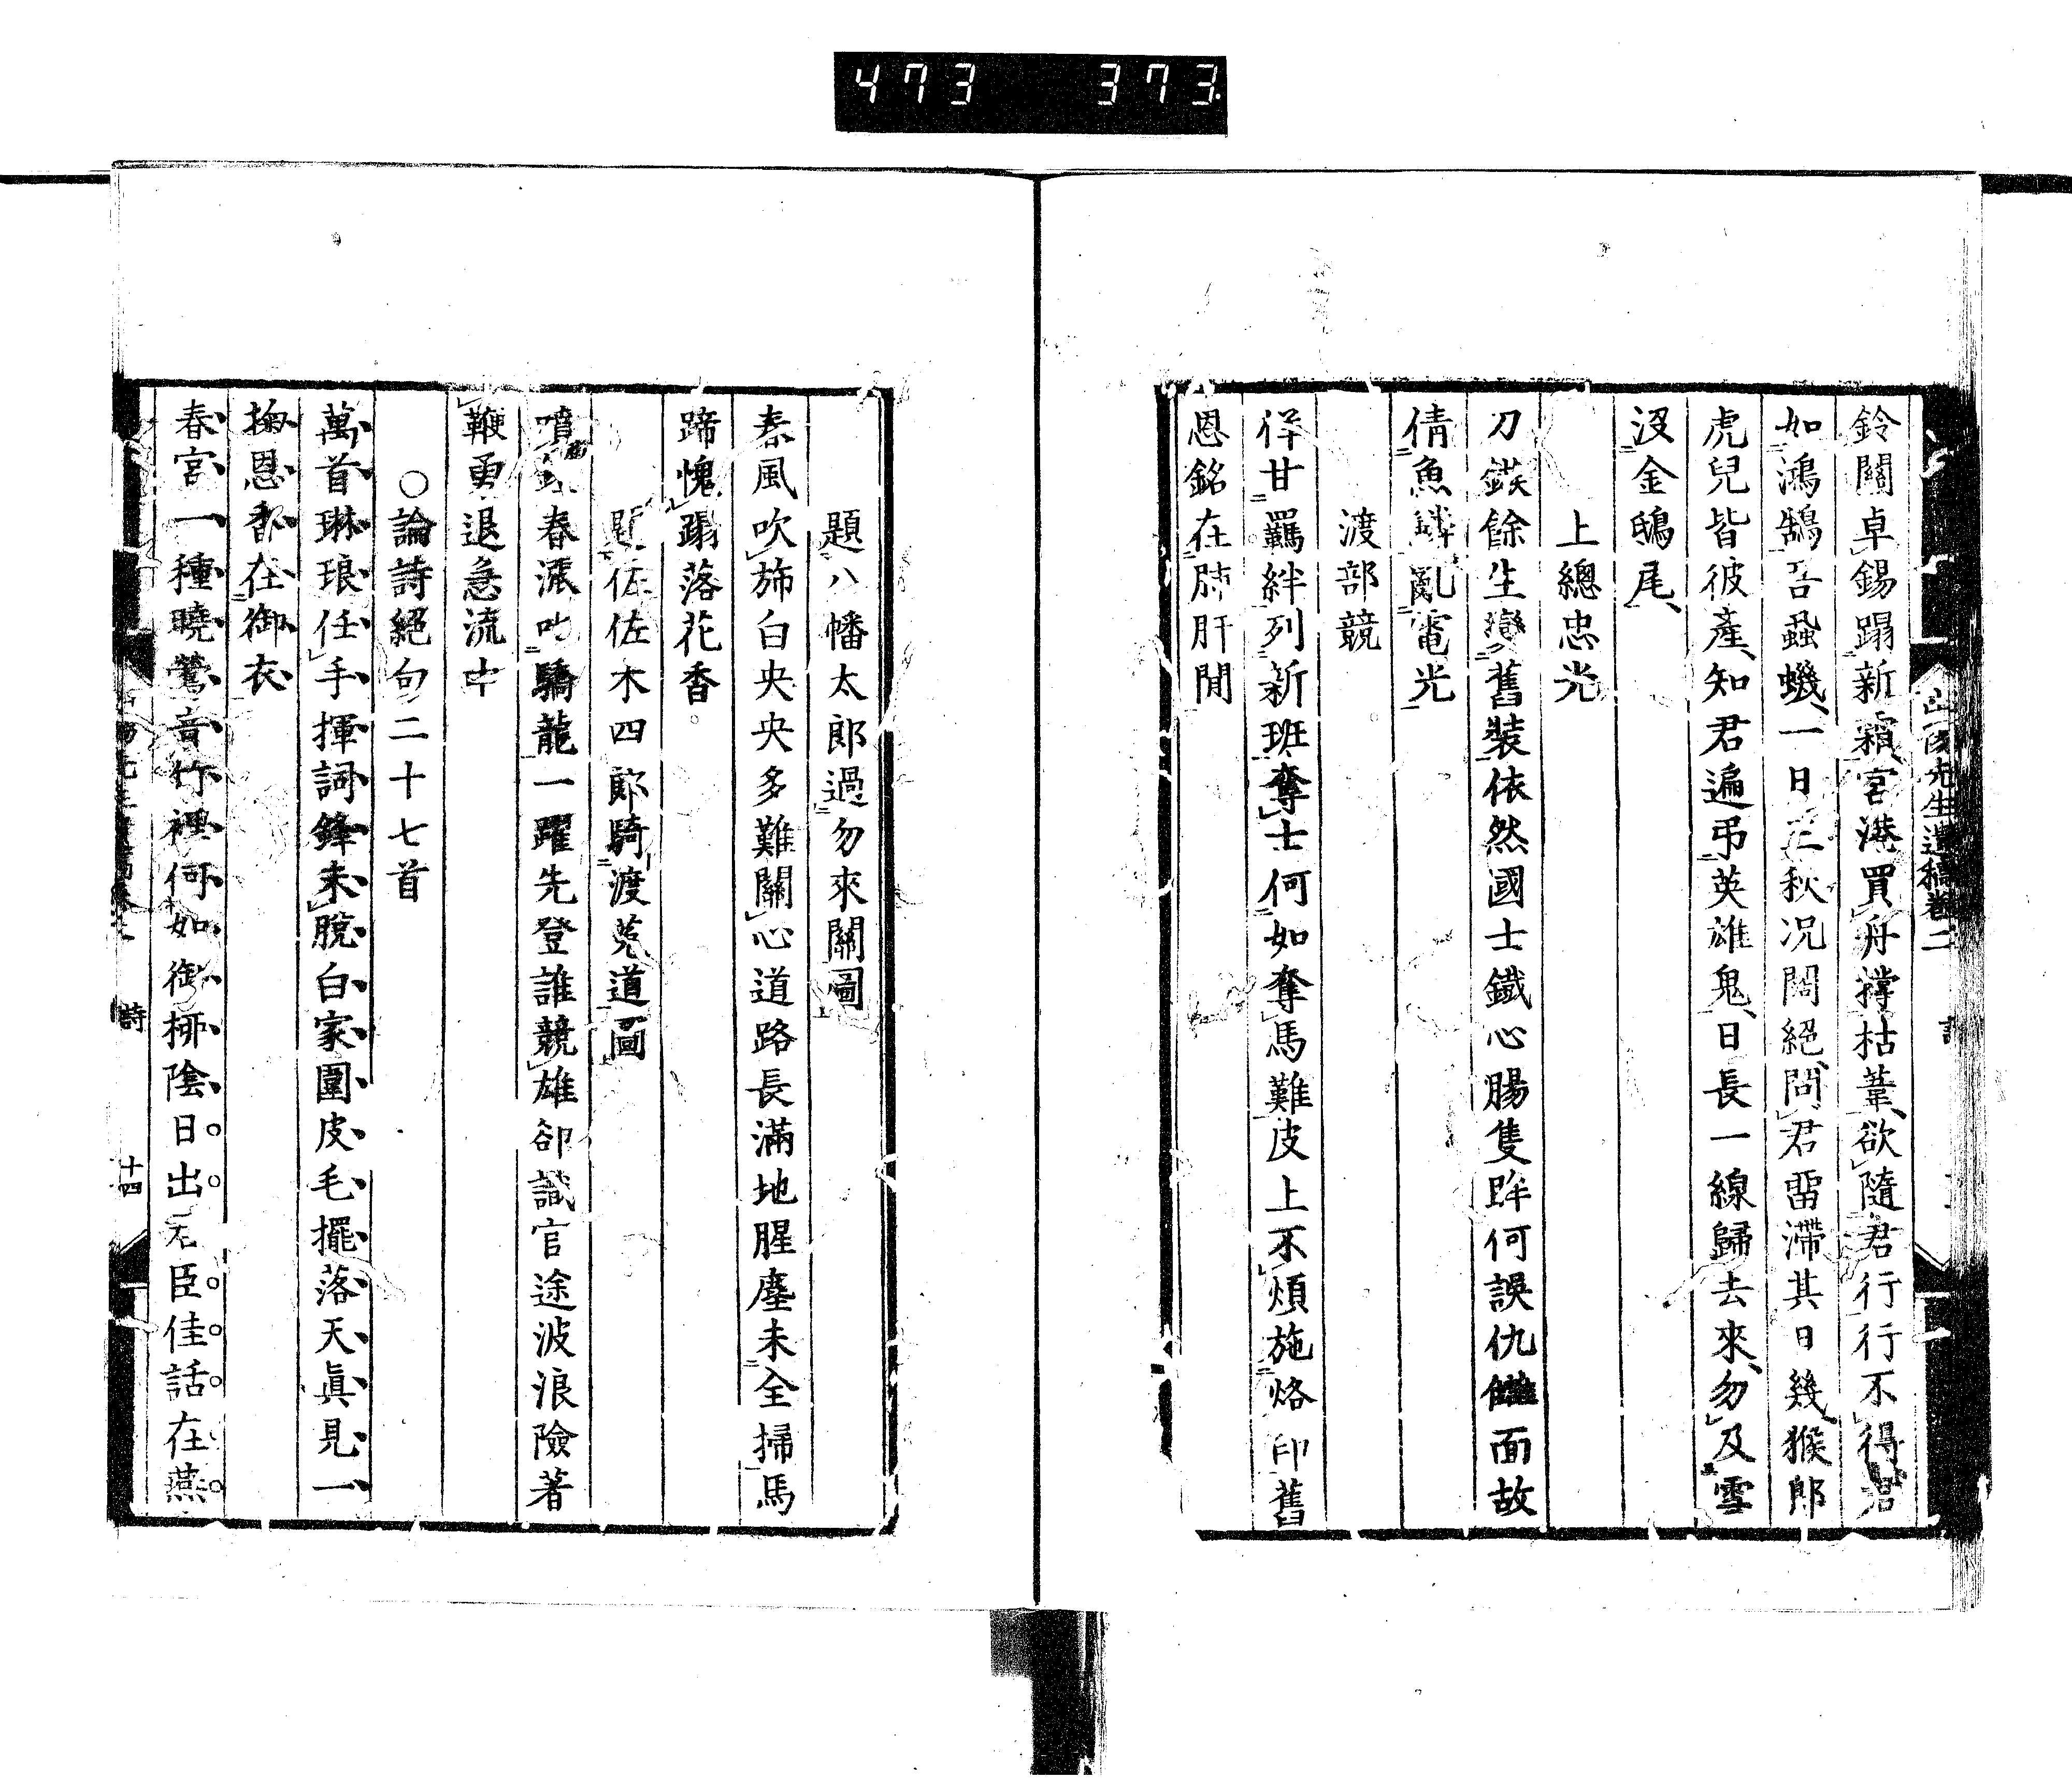 473 373.
山陽先生遺稿卷二
鈴關卓錫蹋新霜、宮港買舟撐枯葦、欲隨君行行不得君
如鴻鵠吾蝨蟣、一日三秋況闊絕、問君畱滯其日幾、猴郎
虎兒皆彼產、知君遍弔英雄鬼、日長一線歸去來、勿及雪
沒金鴟尾、
上總忠光
刀鋩餘生變舊裝依然國士鐵心腸隻眸何誤仇讎面故
倩魚鱗亂電光
渡部競
佯甘羈絆列新班奪士何如奪馬難皮上不煩施烙印舊
恩銘在肺肝閒
題八幡太郎過勿來關圖
春風吹旆白央央多難關心道路長滿地腥塵未全掃馬
蹄愧蹋落花香
題佐佐木四郎騎渡菟道圖
噴 春漲叱驕龍一躍先登誰競雄卻識官途波浪險著
鞭勇退急流中
○論詩絕句二十七首
萬首琳琅任手揮詞鋒未脫白家圍皮毛擺落天眞見一
掬恩香在御衣
春宮一種曉鶯音竹裡何如御柳陰日出君臣佳話在燕
詩
十四